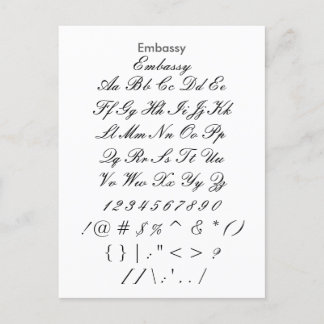 Embassy
Embassy
Aa Bb Cc Dd Ee
Ff Gg Hh Ii Jj Kk
Ll Mm Nn Oo Pp
Qq Rr Ss Tt Uu
Vv Ww Xx Yy Zz
1 2 3 4 5 6 7 8 9 0
! @ # $ % ^ & * ( )
{ } | : " < > ?
/ / \ ; ' . . /